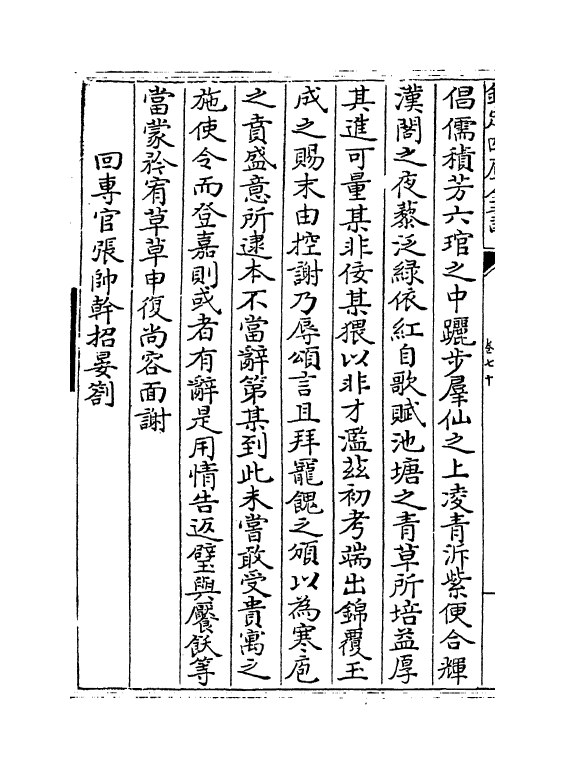 倡儒積芳六琯之中躧步羣仙之上凌青泝紫便合輝
漢閣之夜藜泛緑依紅自歌賦池塘之青草所培益厚
其進可量某非佞某猥以非才濫玆初考端出錦覆玉
成之賜末由控謝乃辱頌言且拜寵餽之頒以為寒庖
之賁盛意所逮本不當辭第某到此未嘗敢受貴寓之
施使令而登嘉則或者有辭是用情告返璧與饜飫等
當蒙矜宥草草申復尚容面謝
回專官張帥幹招宴劄
卷七十